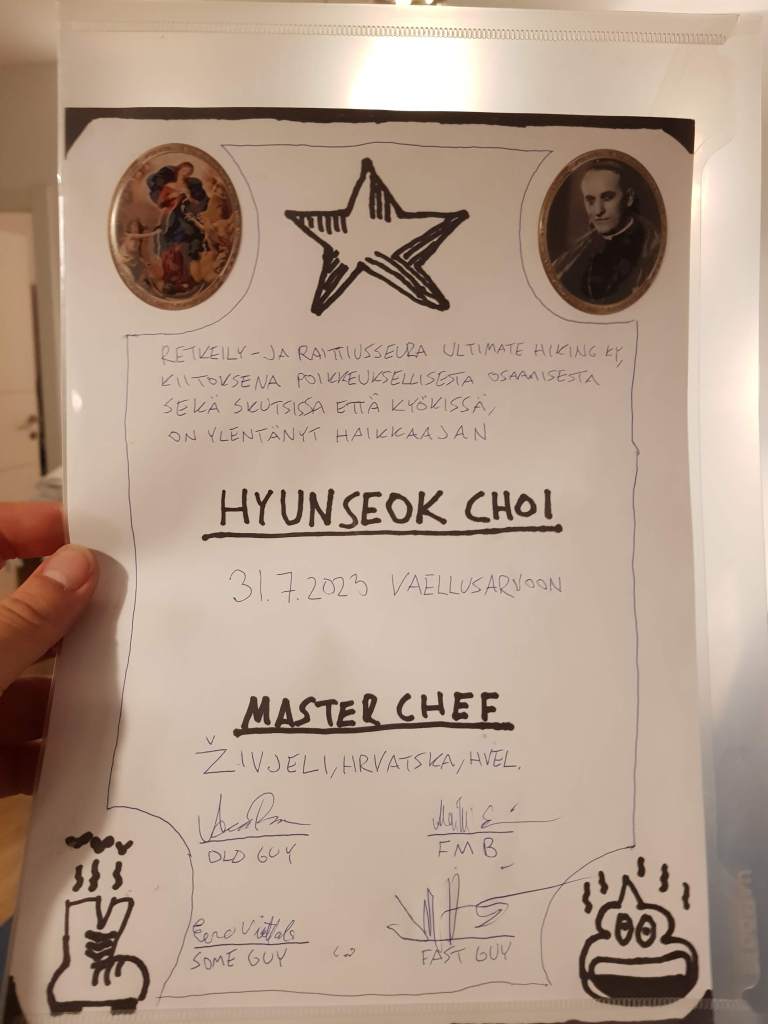 RETKEILY-JA RAITTIUSSEURA ULTIMATE HIKING KY,
KIITOKSENA POIKKEUKSELLISESTA OSAAMISESTA
SEKÄ SKUTSISSA ETTÄ KYÖKISSÄ,
ON YLENTÄNYT HAIKKAAJAN
HYUNSEOK CHOI
31.7.2023 VAELLUSARVOON
MASTER CHEF
ŽIVJELI, HRVATSKA, HVEL.
OLD GUY
FMB
Eero
SOME GUY
FAST GUY